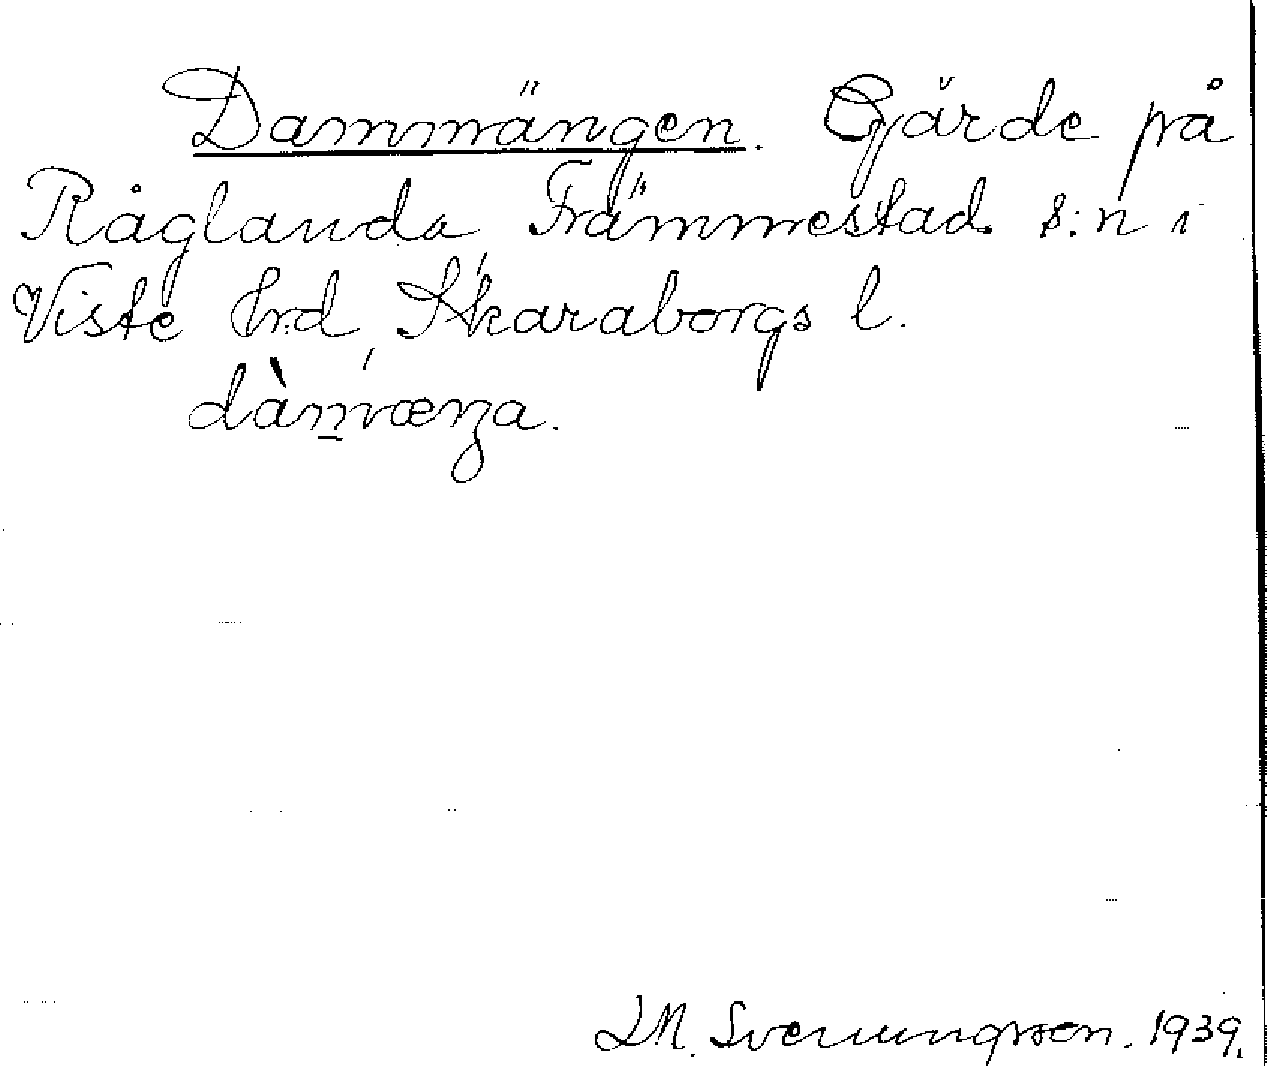 Dammängen. Gärde på
Råglanda, Främmestad s:n i
Viste hrd, Skaraborgs l.
dàm̲væŋa.
I.M. Sverungsson. 1939.